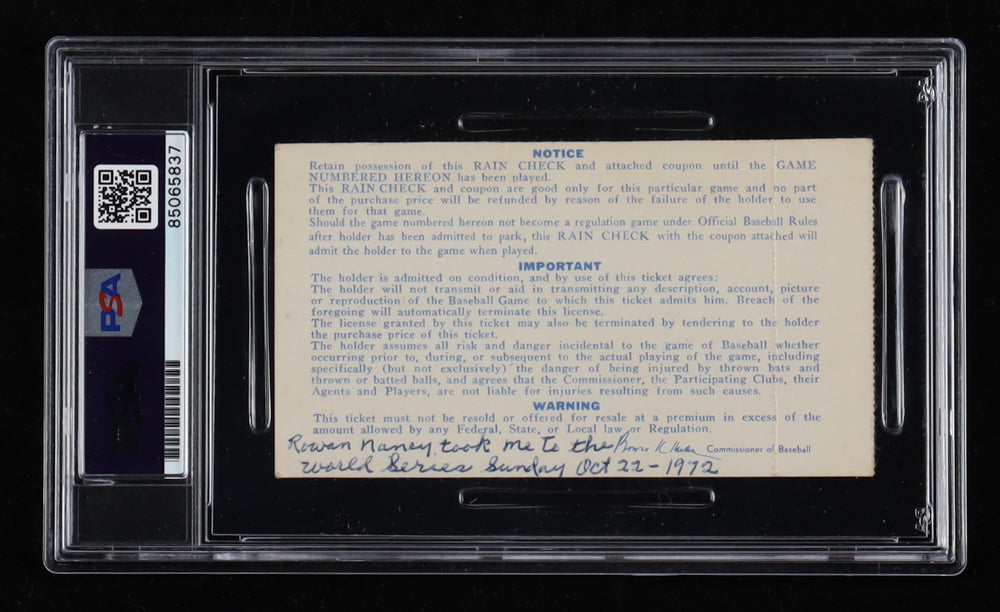 NOTICE
Retain possession of this RAIN CHECK and attached coupon until the GAME
NUMBERED HEREON has been played.
This RAIN CHECK and coupon are good only for this particular game and no part
of the purchase price will be refunded by reason of the failure of the holder to use
them for that game.
Should the game numbered hereon not become a regulation game under Official Baseball Rules
after holder has been admitted to park, this RAIN CHECK with the coupon attached will
admit the holder to the game when played.
IMPORTANT
The holder is admitted on condition, and by use of this ticket agrees:
The holder will not transmit or aid in transmitting any description, account, picture
or reproduction of the Baseball Game to which this ticket admits him. Breach of the
foregoing will automatically terminate this license.
The license granted by this ticket may also be terminated by tendering to the holder
the purchase price of this ticket.
The holder assumes all risk and danger incidental to the game of Baseball whether
occurring prior to, during, or subsequent to the actual playing of the game, including
specifically (but not exclusively) the danger of being injured by thrown bats and
thrown or batted balls, and agrees that the Commissioner, the Participating Clubs, their
Agents and Players, are not liable for injuries resulting from such causes.
WARNING
This ticket must not be resold or offered for resale at a premium in excess of the
amount allowed by any Federal, State, or Local law or Regulation.
Commissioner of Baseball
Rowen Naney took me to the
World Series Sunday Oct 22-1972
85065837
PSA